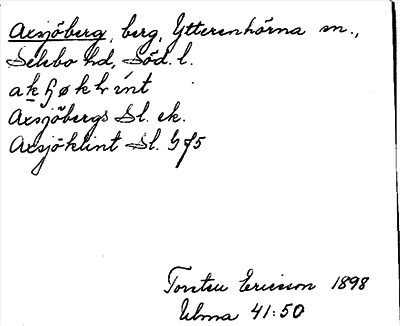 Axsjöberg, berg, Ytterenhörna sn.,
Selebo hd, Söd. l.
Axsjöbergs Sl. ek.
Axsjöklint Sl.
Torsten Ericsson 1898
Ulma 41:50